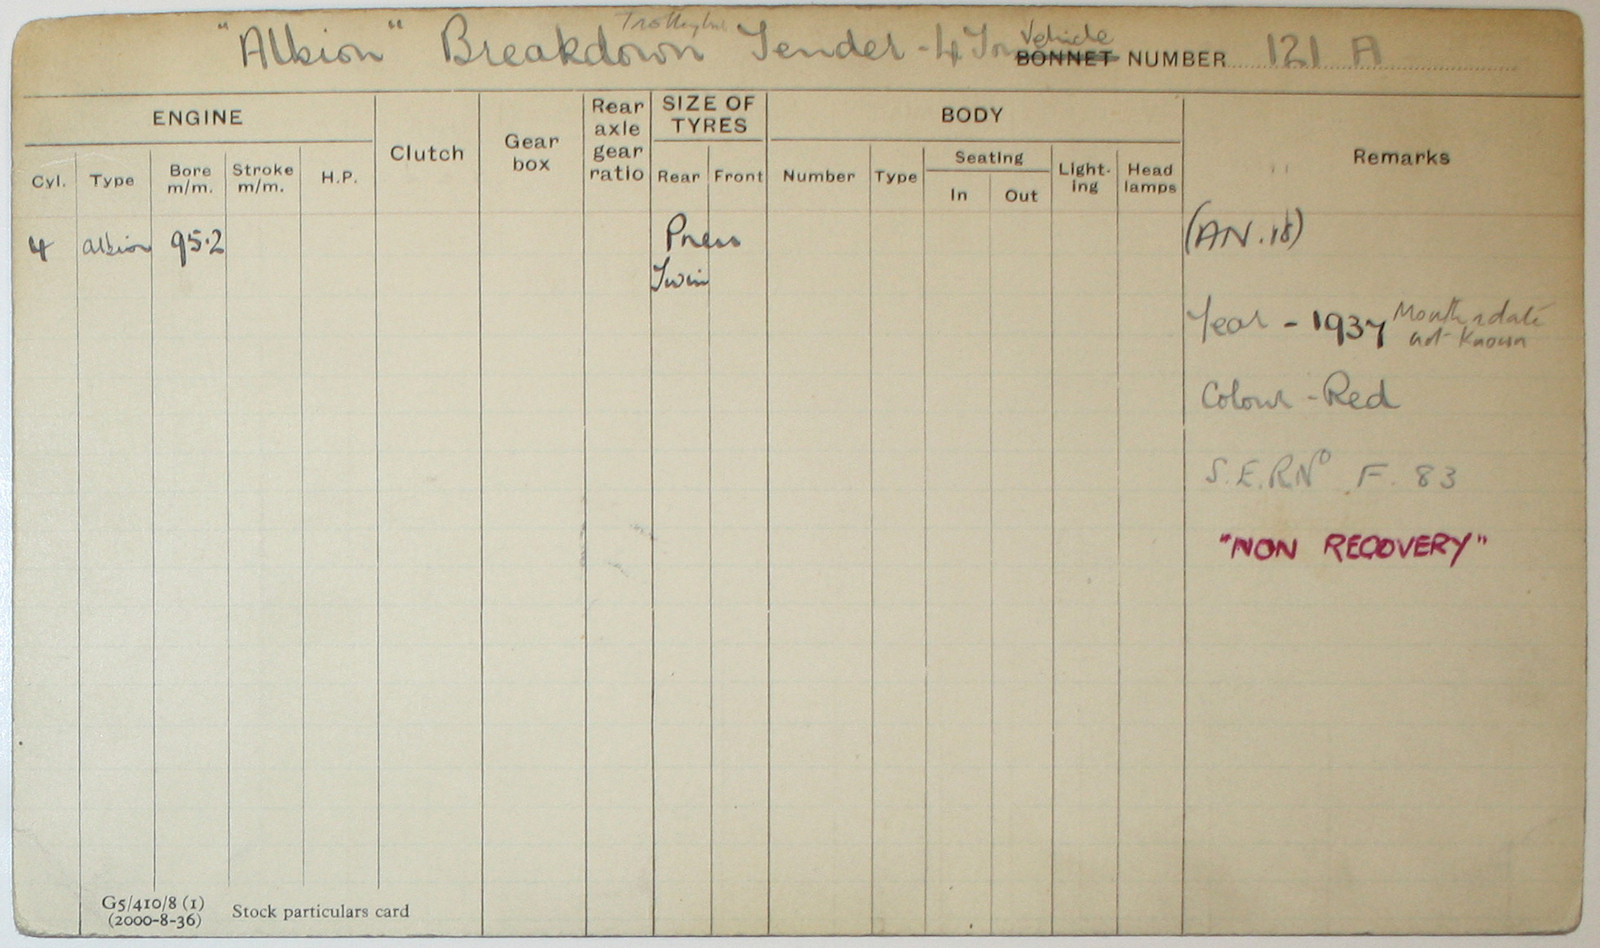 "Albion" Breakdown Trolleybus Tender - 4 Ton Vehicle BONNET NUMBER 121 A
ENGINE
Clutch
Gear box
Rear axle gear ratio
SIZE OF TYRES
BODY
Remarks
Cyl. Type Bore m/m. Stroke m/m. H.P.
Rear Front
Number Type Seating In Out Light-ing Head lamps
4 Albion 95.2 Pneu (AN.18)
Twin
Year - 1937 Month & date not known
Colour - Red
S.E.R Nº F. 83
"NON RECOVERY"
G5/410/8 (1)
(2000-8-36) Stock particulars card